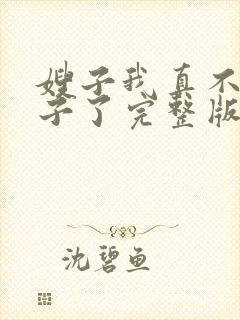 嫂子我真不
子了完整版
沈碧鱼